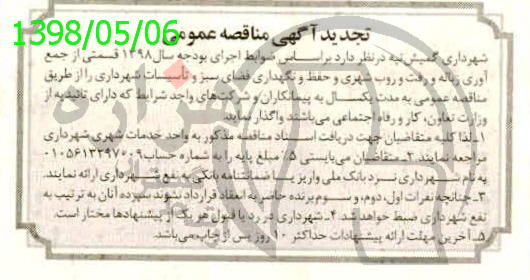 1398/05/06
تجدید آگهی مناقصه عمومی
شهرداری گمیش تپه درنظر دارد براساس ضوابط اجرای بودجه سال ۱۳۹۸ قسمتی از جمع
آوری زباله و رفت و روب شهری و حفظ و نگهداری فضای سبز و تأسیسات شهرداری را از طریق
مناقصه عمومی به مدت یکسال به پیمانکاران و شرکت‌های واجد شرایط که دارای تائیدیه از
وزارت تعاون، کار و رفاه اجتماعی می‌باشند واگذار نماید.
۱ـ لذا کلیه متقاضیان جهت دریافت اسناد مناقصه مذکور به واحد خدمات شهری شهرداری
مراجعه نمایند. ۲ـ متقاضیان می‌بایستی ۵٪ مبلغ پایه را به شماره حساب
به نام شهرداری نزد بانک ملی واریز یا ضمانتنامه بانکی به نفع شهرداری ارائه نمایند.
۳ـ چنانچه نفرات اول، دوم، و سوم برنده حاضر به انعقاد قرارداد نشوند سپرده آنان به ترتیب به
نفع شهرداری ضبط خواهد شد. ۴ـ شهرداری در رد یا قبول هر یک از پیشنهادها مختار است.
۵ـ آخرین مهلت ارائه پیشنهادات حداکثر ۱۰ روز پس از چاپ می‌باشد.